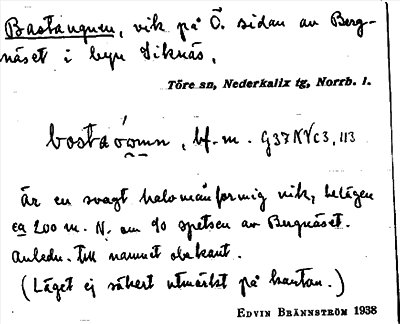 Bastaugnen, vik på Ö. sidan av Berg-
näset i byn Siknäs.
Töre sn, Nederkalix tg, Norrb. l.
bf. m.
Är en svagt halvmånformig vik, belägen
ca 200 m. N. om yo spetsen av Bergnäset.
Anledn. till namnet obekant.
(Läget ej säkert utmärkt på kartan.)
EDVIN BRÄNNSTRÖM 1938